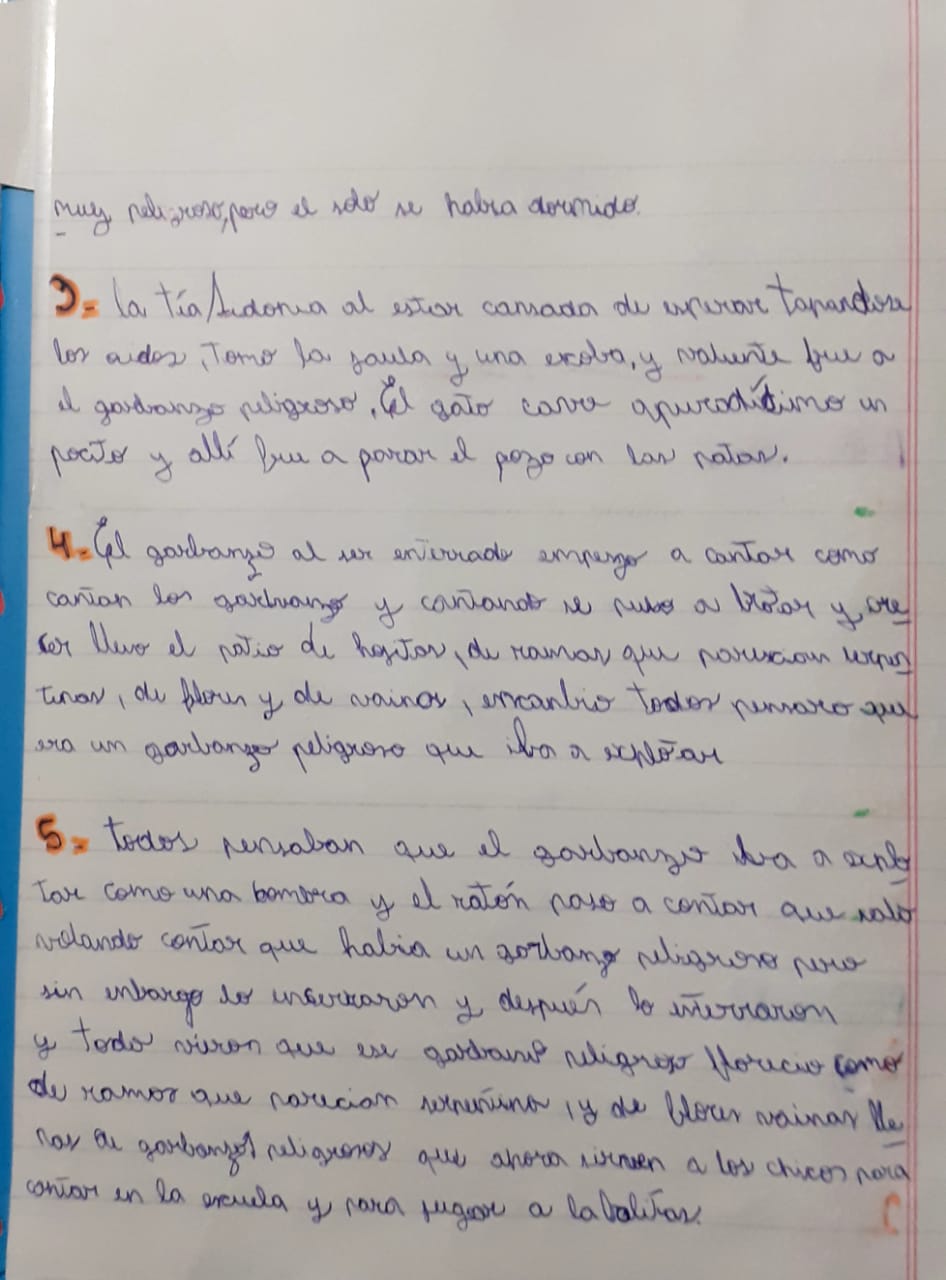 muy peligroso, pero el solo se habia dormido.
3= la tía Sidonia al estar cansada de esperar tapandose
los oidos, Tomo la jaula y una escoba, y valiente fue a
el garbanzo peligroso, El gato cavo apuradísimo un
pocito y allí fue a parar el pozo con las patas.
4= El garbanzo al ser enterrado empezo a cantar como
cantan los garbanzo y cantando se puso a brotar y cre
cer lleno el patio de hojitas, de ramas que parecian serpen
tinas, de flores y de vainas, encanbio todos pensaro que
era un garbanzo peligroso que iba a explotar
5= todos pensaban que el garbanzo iba a explo
tar como una bombra y el ratón paso a contar que salo
volando contar que habia un garbanzo peligroso pero
sin enbargo lo enserraron y después lo enterraron
y todo vieron que ese garbanzo peligroso florecio como
de ramas que parecian serpentina, y de flores vainas lle
nas de garbanzos peligrosos que ahora sirven a los chicos para
contar en la escuela y para jugar a la bolitas.